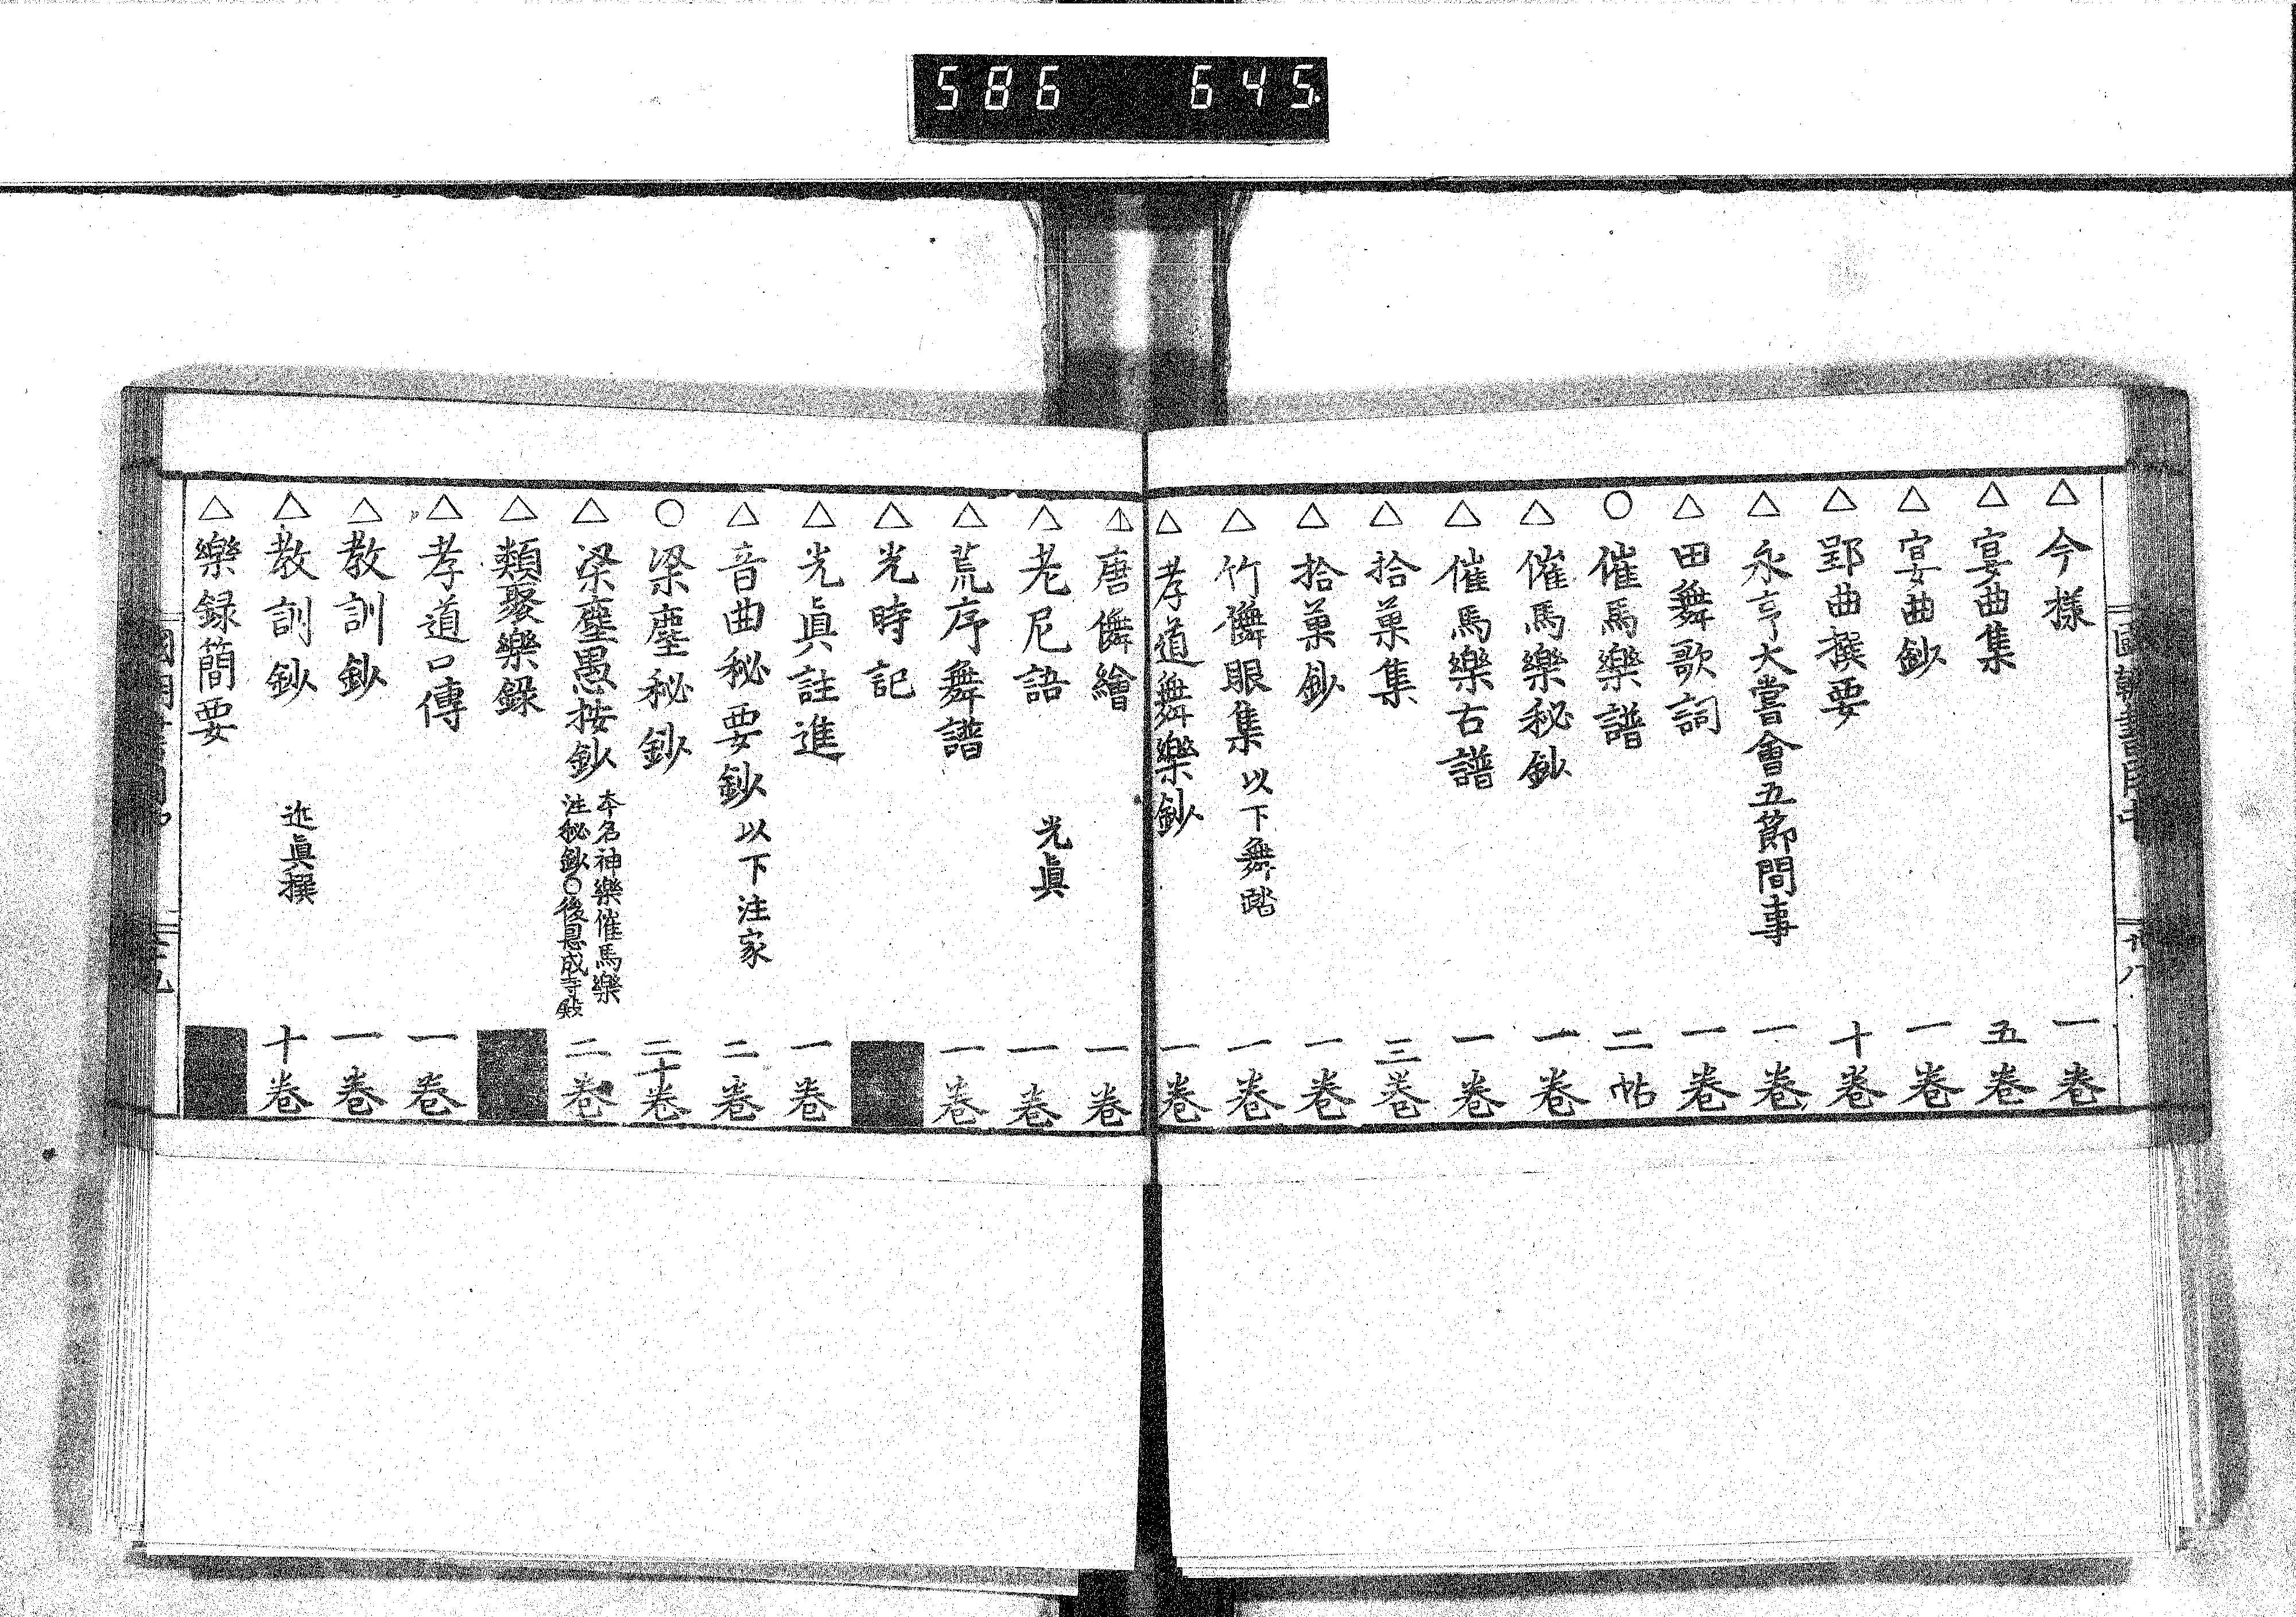 586 645.
△今様 一巻
△宴曲集 五巻
△宴曲鈔 一巻
△郢曲撰要 十巻
△永亨大嘗會五節間事 一巻
△田舞歌詞 一巻
○催馬樂譜 二帖
△催馬樂秘鈔 一巻
△催馬樂古譜 一巻
△拾菓集 三巻
△拾菓鈔 一巻
△竹儛眼集 以下舞踏 一巻
△孝道舞樂鈔 一巻
△唐儛繪 一巻
△老尼語 光眞 一巻
△荒序舞譜 一巻
△光時記
△光眞註進 一巻
△音曲秘要鈔 以下注家 二巻
○梁塵秘鈔 二十巻
△梁塵愚按鈔 本名神樂催馬樂
注秘鈔○後恩成寺殿 二巻
△類聚樂錄
△孝道口傳 一巻
△教訓鈔 一巻
△教訓鈔 近眞撰 十巻
△樂録簡要
卅八